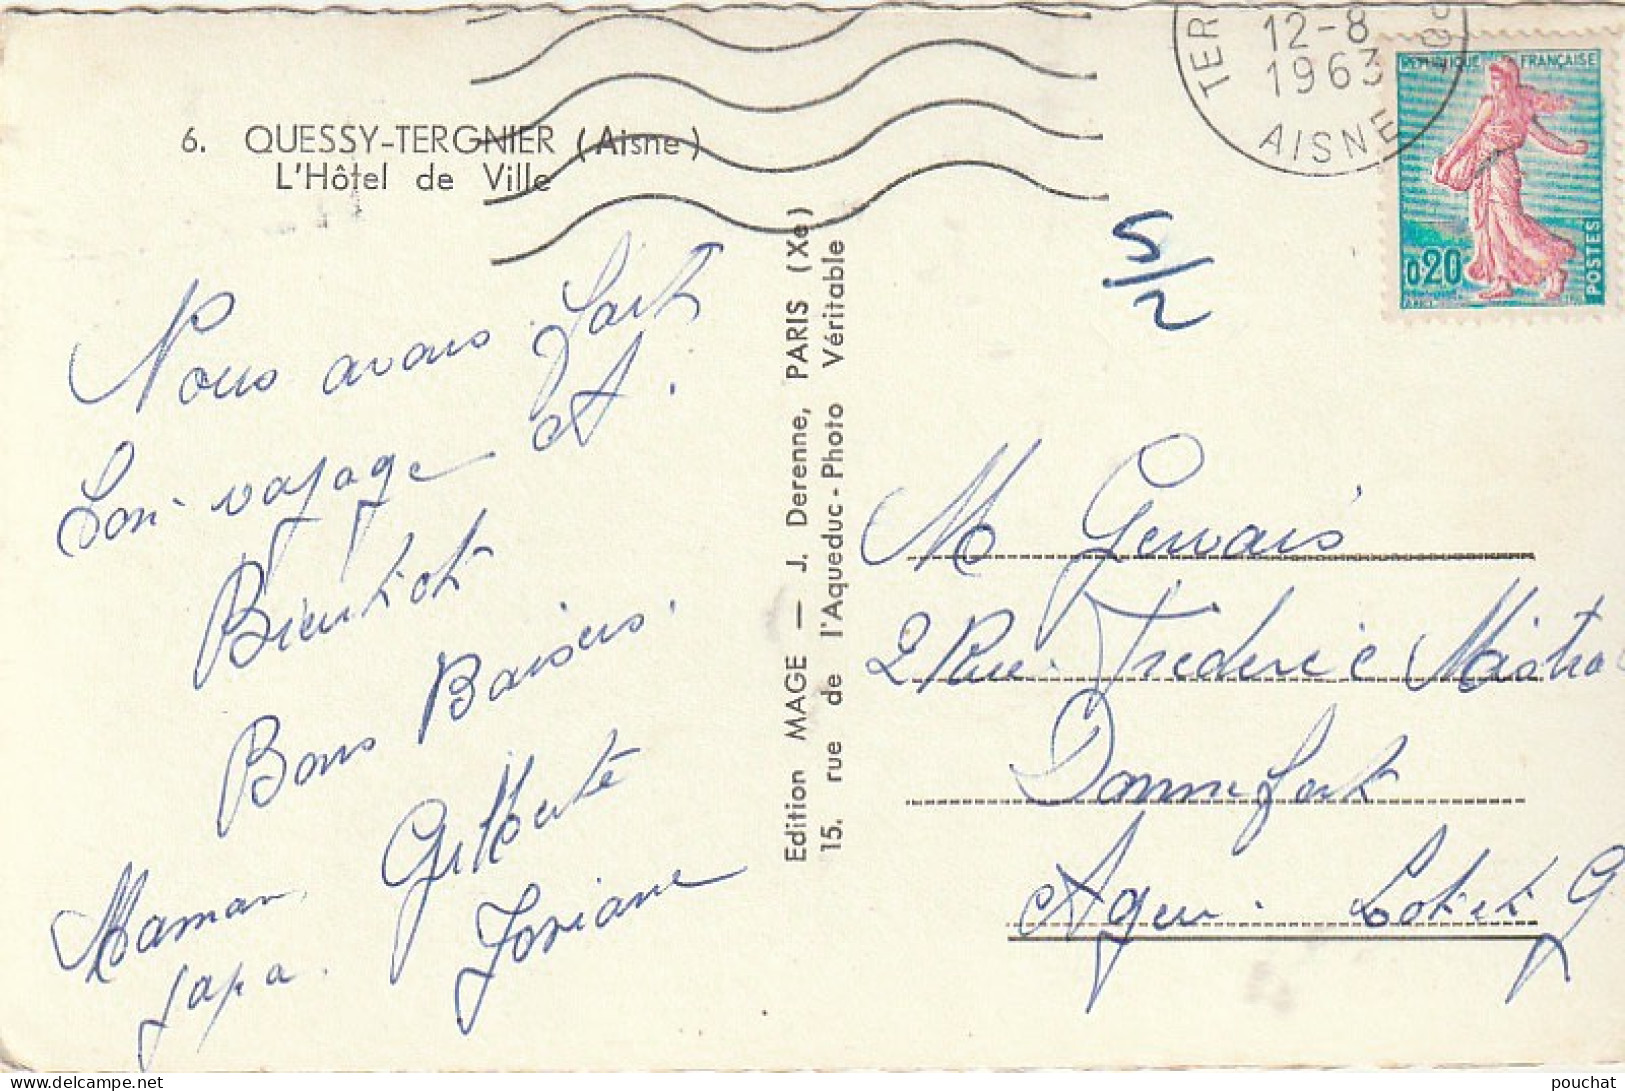 6. QUESSY-TERGNIER (Aisne)
L'Hôtel de Ville
Nous avons fait
bon voyage et A.
Bientôt
Bons Baisers.
Maman, Gilberte
papa. Josiane
Edition MAGE — J. Derenne, PARIS (Xe)
15. rue de l'Aqueduc - Photo Véritable
TER
12-8
1963
AISNE
REPUBLIQUE FRANÇAISE
0,20
POSTES
5/2
M Gervais
2 Rue Frederic Mistra
Donnefort
Agen. Lot et G
pouchat